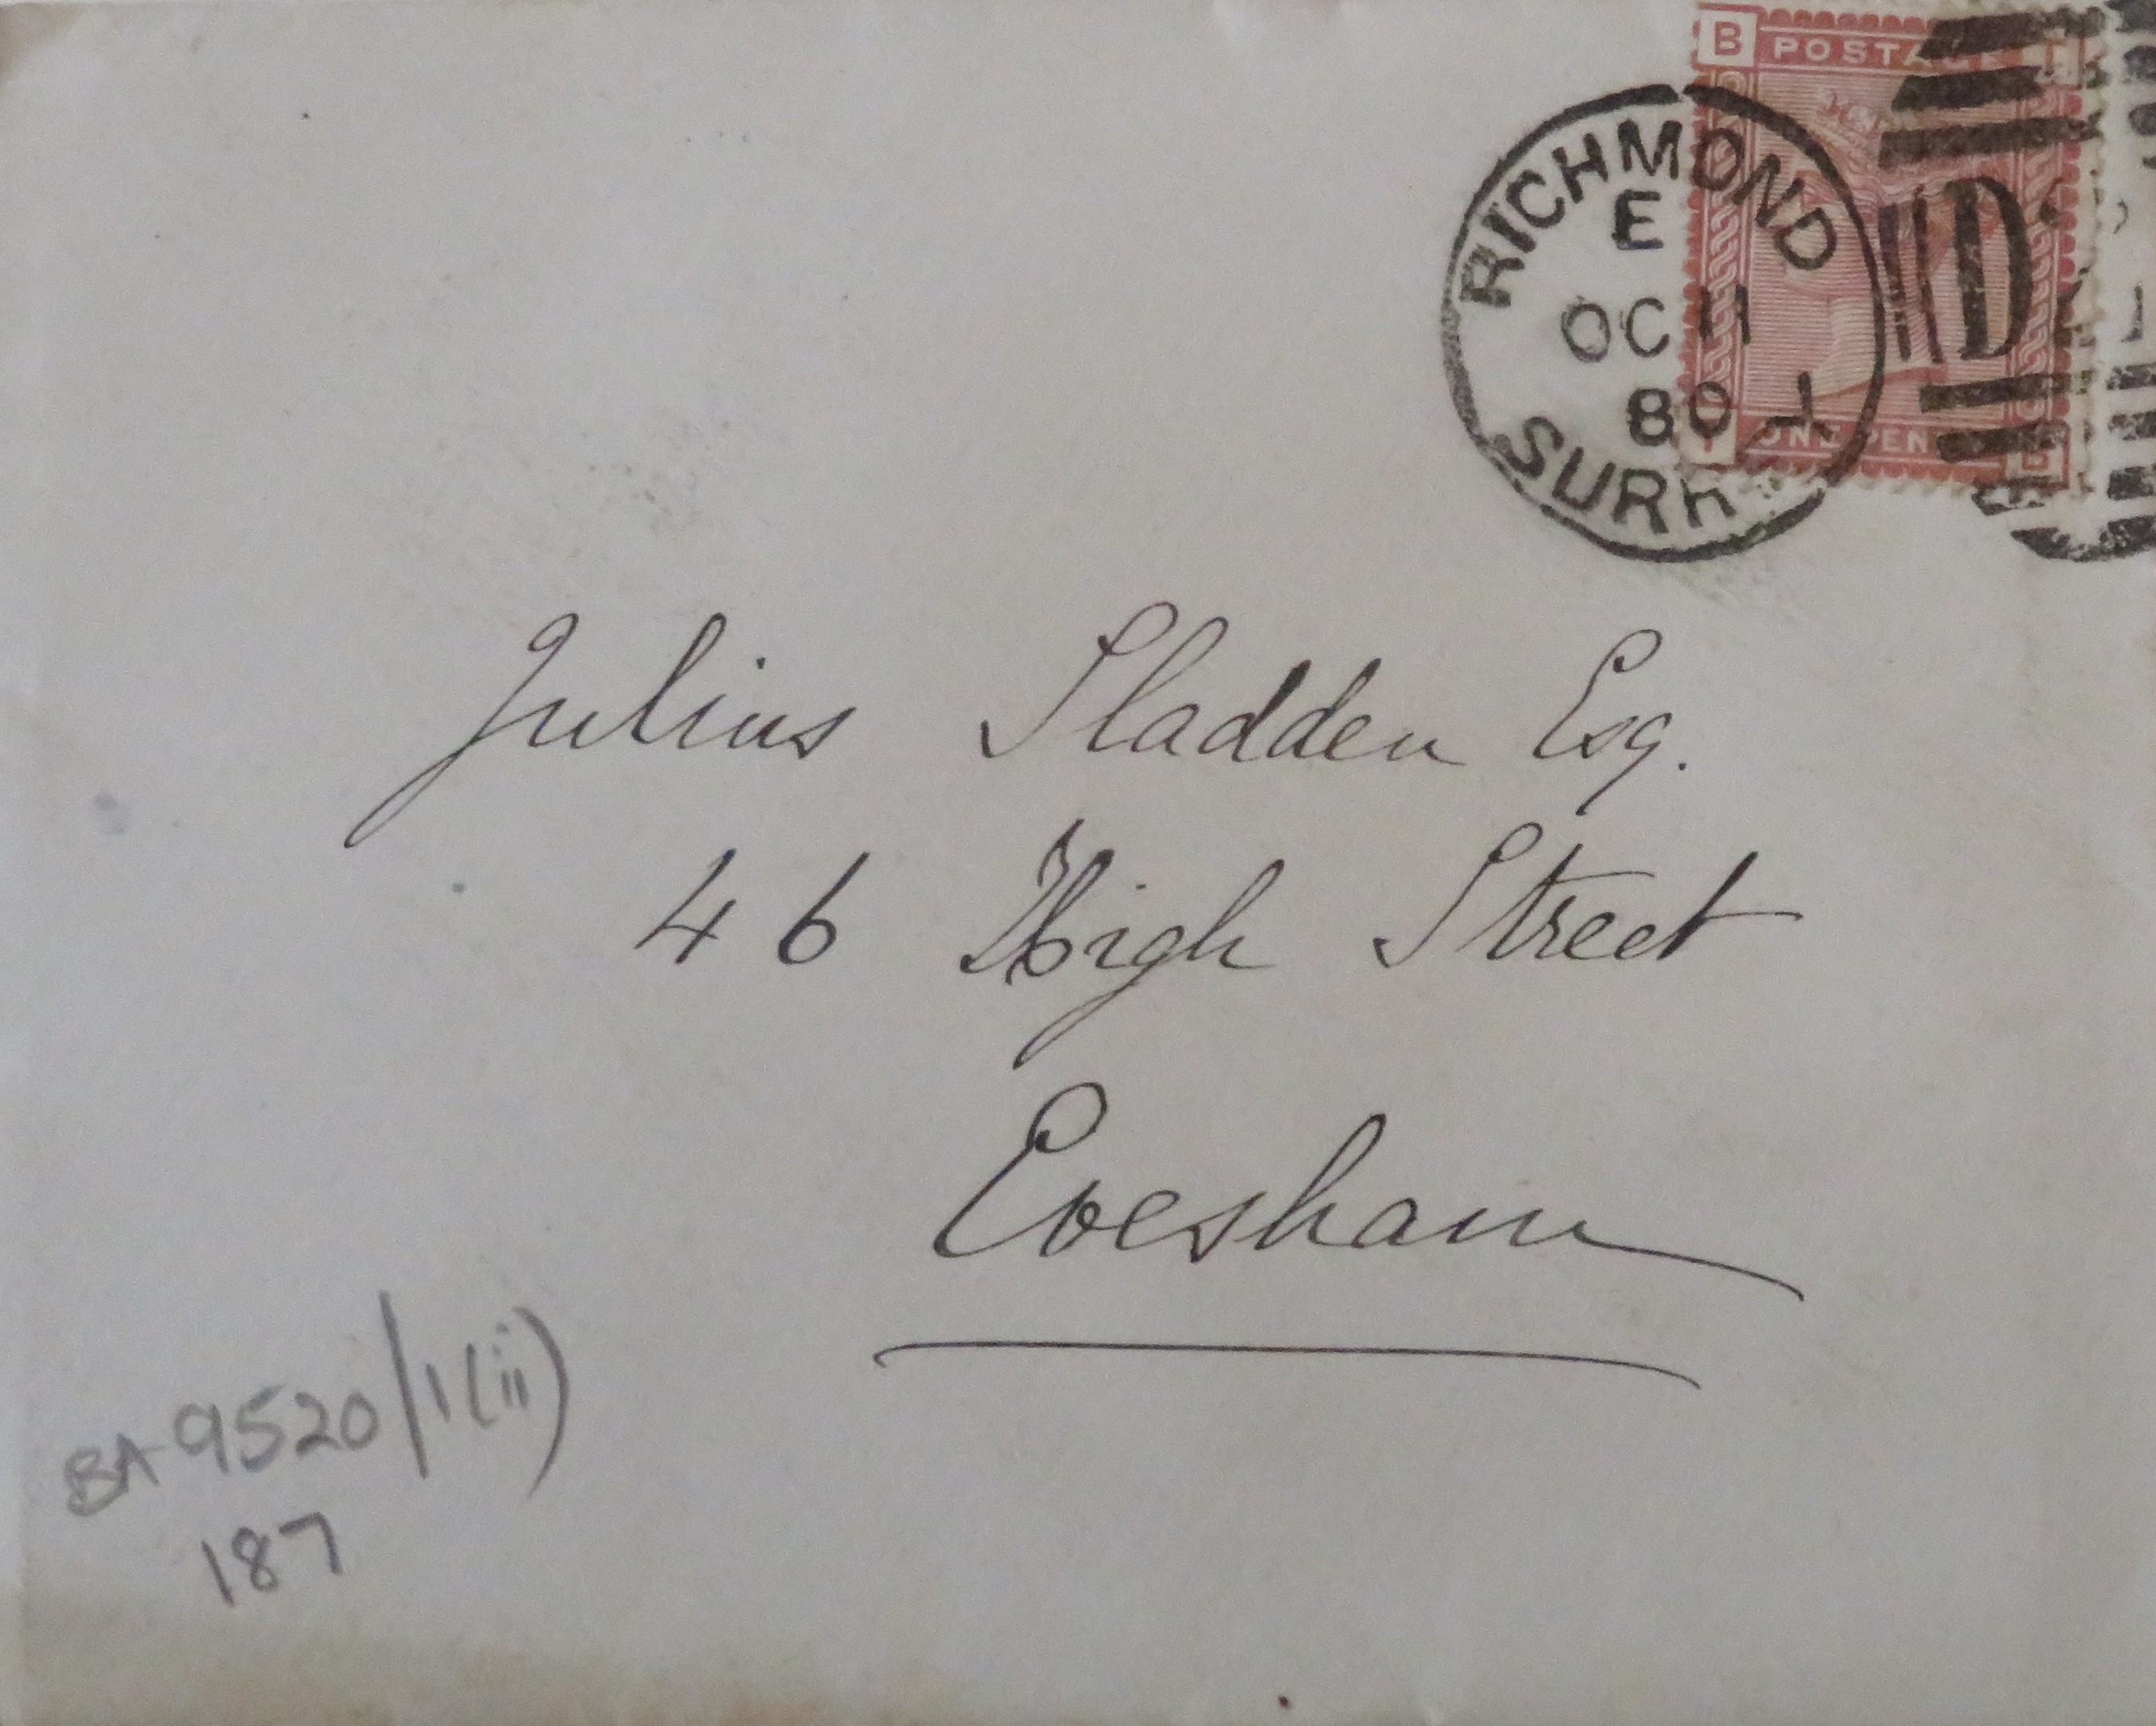 B POSTAGE
RICHMOND
E
OC 11
80
SURREY
D
ONE PENNY
B
Julius Sladden Esq.
46 High Street
Evesham
BA 9520/1(ii)
187